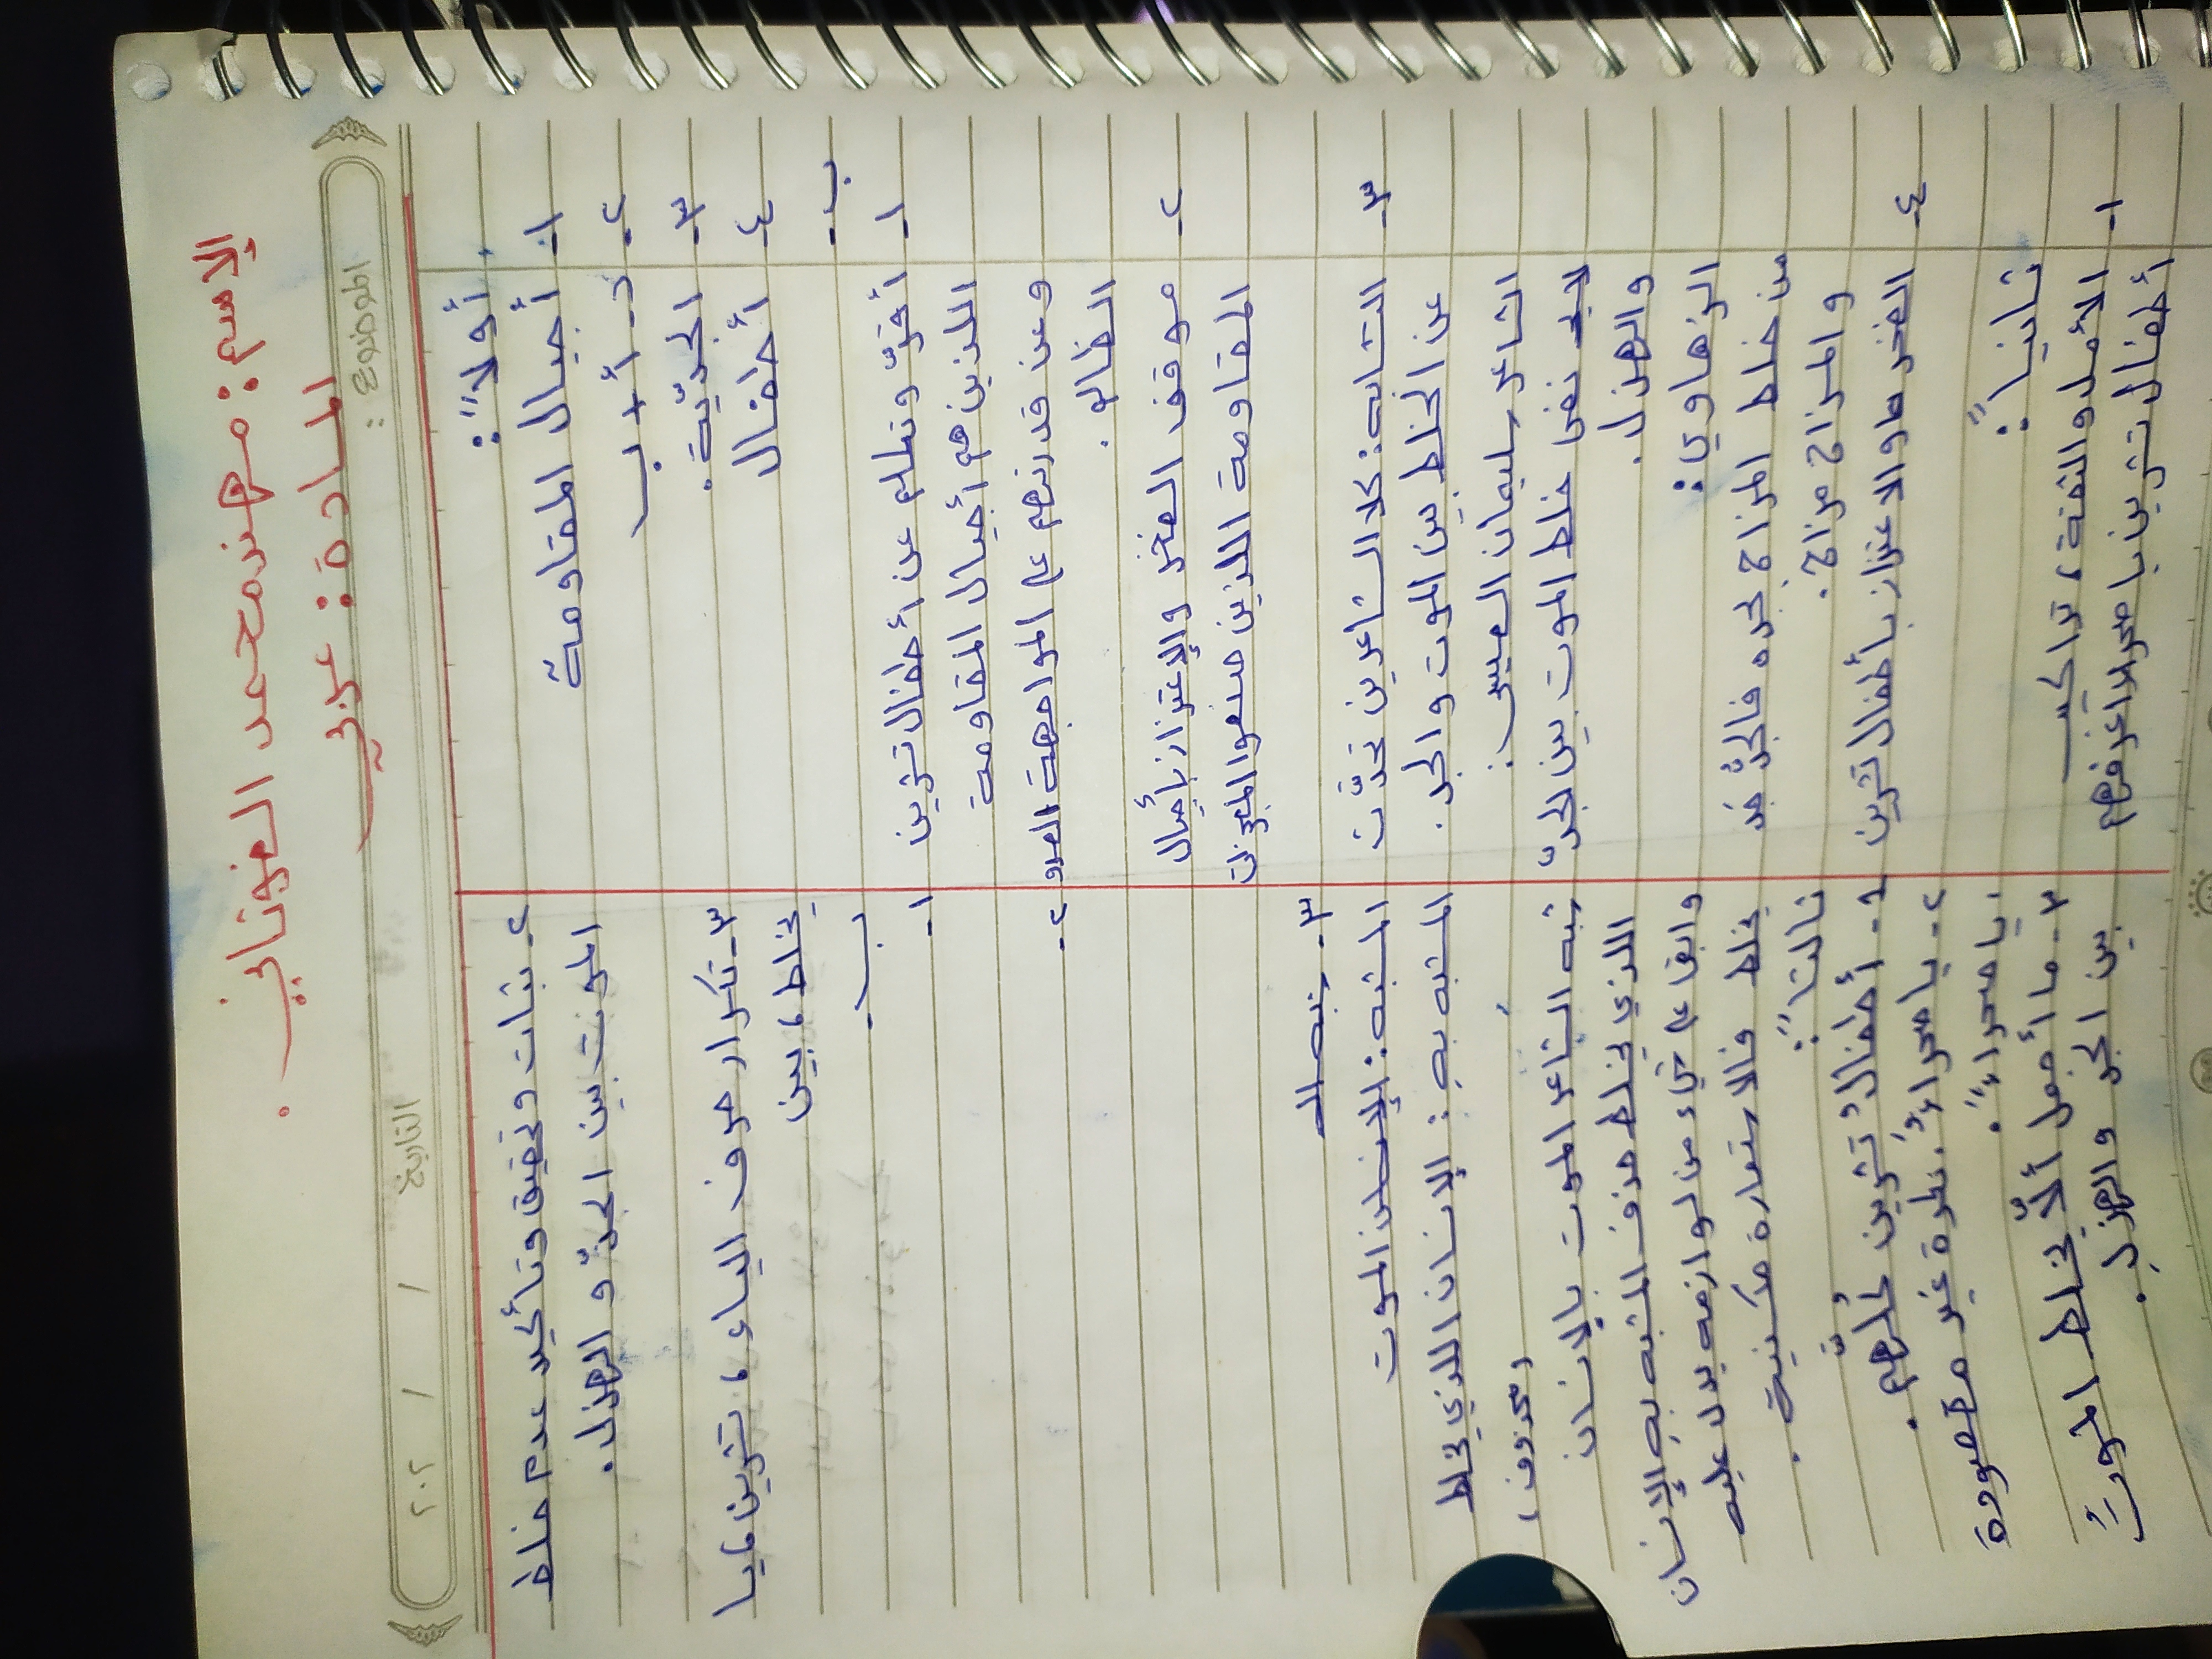 الإسم: مهند محمد العنوناني.
المادة: عربي
الموضوع:
التاريخ / / ٢٠٢
أولاً:
١- أجيال المقاومة
٢- د- أ+ب
٣- الجديّة.
٤- أطفال
ب-
١- أفتّر وتعلم عن أطفال تشرين
اللذين هم أجيال المقاومة
وعن قدرتهم على المواجهة العدو
الظالم.
٢- موقف الفخر والإعتزاز بأجيال
المقاومة اللذين صنعوا المعجزات
٣- التشابه: كلا الشاعرين تحدّث
عن الخلط بين الموت والجد.
الشاعر سليمان العيسى:
نفى خلط الموت بين الجدّ
والهزل.
الزهاوي:
من خلط المزاح بجده فالجدّ جد
و المزاح مزاح.
٤- الفخر والاعتزاز بأطفال تشرين
ثانياً:
١- الأمل والثقة، تراكيب
أطفال تشرين يا صحراء أعرفهم
٢- ثبات وتحقيق وتأكيد عدم خلط
الموت بين الجدّ و الهزل.
٣- تكرار حرف الياء، تشرين، يا
يخلط، بين
ب-
١-
٢-
٣- شبه الـ
المشبه: الإنسان الموت
المشبه به: الإنسان الذي يخلط
(محذوف)
شبه الشاعر الموت بالإنسان
اللذي يخلط حذف المشبه به الإنسان
وابقاء على شيء من لوازمه يدل عليه
يخلط فالاستعارة مكنية.
ثالثاً:
١- أطفالُ تشرين كُلّهم.
٢- يا صحراءُ: نكرة غير مقصودة
يا صحراءً.
٣- ما أجمل ألّا يخلط الموتُ
بين الجد والهزل.